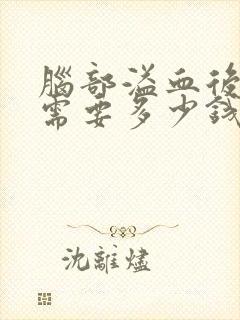 腦部溢血後
需要多少錢
沈離燼